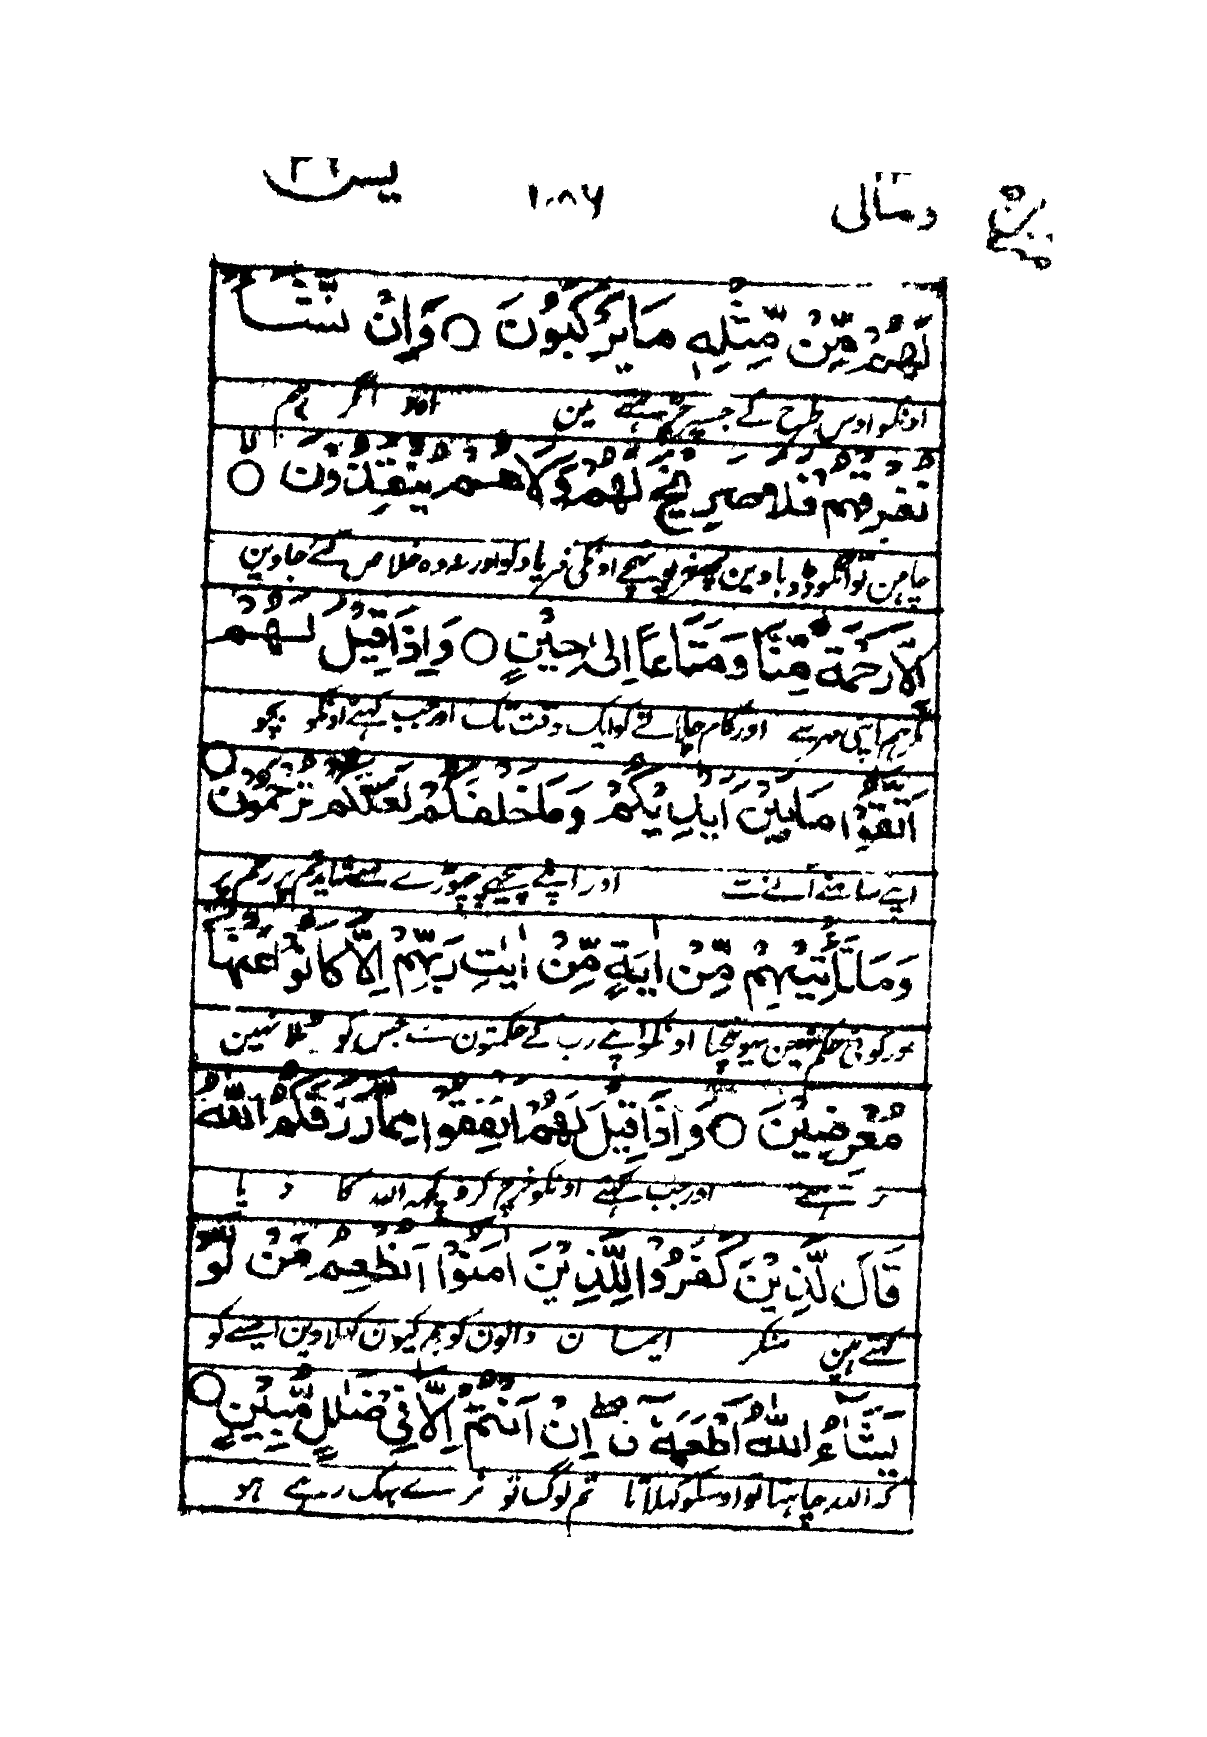 ومالی ١٠٨٦ یٰس ٣٦
لَهُمْ مِّنْ مِّثْلِهٖ مَا یَرْكَبُوْنَ ○ وَاِنْ نَّشَاْ
اونکو اوس طرح کے جسپر چڑہتے ہین اور اگر ہم
نُغْرِقْهُمْ فَلَا صَرِیْخَ لَهُمْ وَلَا هُمْ یُنْقَذُوْنَ ○
چاہین تو اونکو ڈوبا دین پہر نہ پہنچے اونکی فریاد کو اور نہ وہ خلاص کئے جاوین
اِلَّا رَحْمَةً مِّنَّا وَمَتَاعًا اِلٰى حِیْنٍ ○ وَاِذَا قِیْلَ لَهُمْ
مگر ہم اپنی مہر سے اور کام چلانے کو ایک وقت تک اور جب کہئے اونکو بچو
اتَّقُوْا مَا بَیْنَ اَیْدِیْكُمْ وَمَا خَلْفَكُمْ لَعَلَّكُمْ تُرْحَمُوْنَ ○
اپنے سامنے آنے اور اپنے پیچھے چھوڑے سے شاید تم پر رحم
وَمَا تَاْتِیْهِمْ مِّنْ اٰیَةٍ مِّنْ اٰیٰتِ رَبِّهِمْ اِلَّا كَانُوْا عَنْهَا
اور کوئی حکم نہین پہونچتا اونکو اپنے رب کے حکمتون جس کو نہین
مُعْرِضِیْنَ ○ وَاِذَا قِیْلَ لَهُمْ اَنْفِقُوْا مِمَّا رَزَقَكُمُ اللّٰهُ
اور جب کہئے اونکو خرچ کرو کچھ اللہ کا دیا
قَالَ الَّذِیْنَ كَفَرُوْا لِلَّذِیْنَ اٰمَنُوْا اَنُطْعِمُ مَنْ لَّوْ
کہتے ہین منکر ایمان والون کو ہم کیون کہلاوین ایسے کو
یَشَآءُ اللّٰهُ اَطْعَمَهٗ ق اِنْ اَنْتُمْ اِلَّا فِیْ ضَلٰلٍ مُّبِیْنٍ ○
کہ اللہ چاہتا تو اوسکو کہلاتا تم لوگ تو نرے بہک رہے ہو